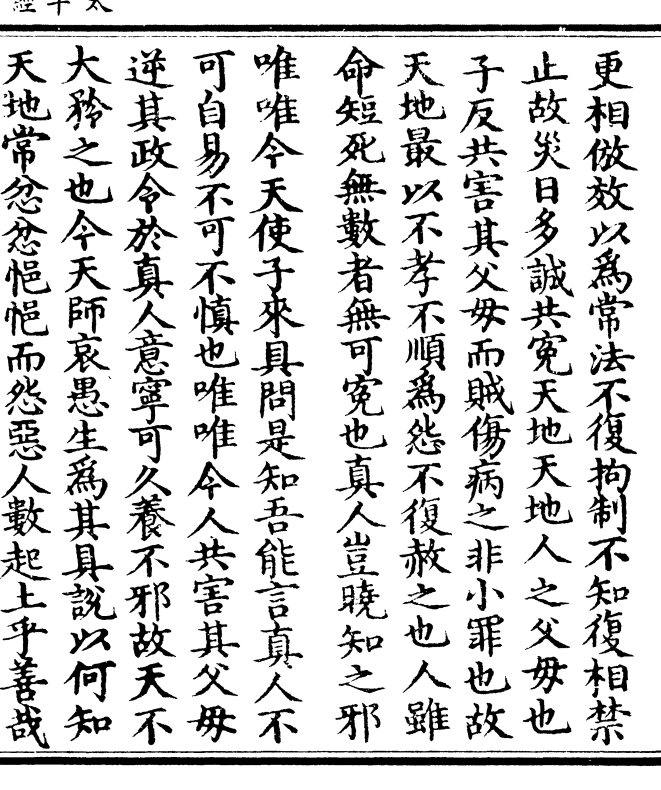 太平經
更相倣效以為常法不復拘制不知復相禁
止故災日多誠共寃天地天地人之父母也
子反共害其父母而賊傷病之非小罪也故
天地最以不孝不順為怨不復赦之也人雖
命短死無數者無可寃也真人豈曉知之邪
唯唯今天使子來具問是知吾能言真人不
可自易不可不慎也唯唯今人共害其父母
逆其政令於真人意寧可久養不邪故天不
大矜之也今天師哀愚生為其具說以何知
天地常忿忿悒悒而怨惡人數起土乎善哉